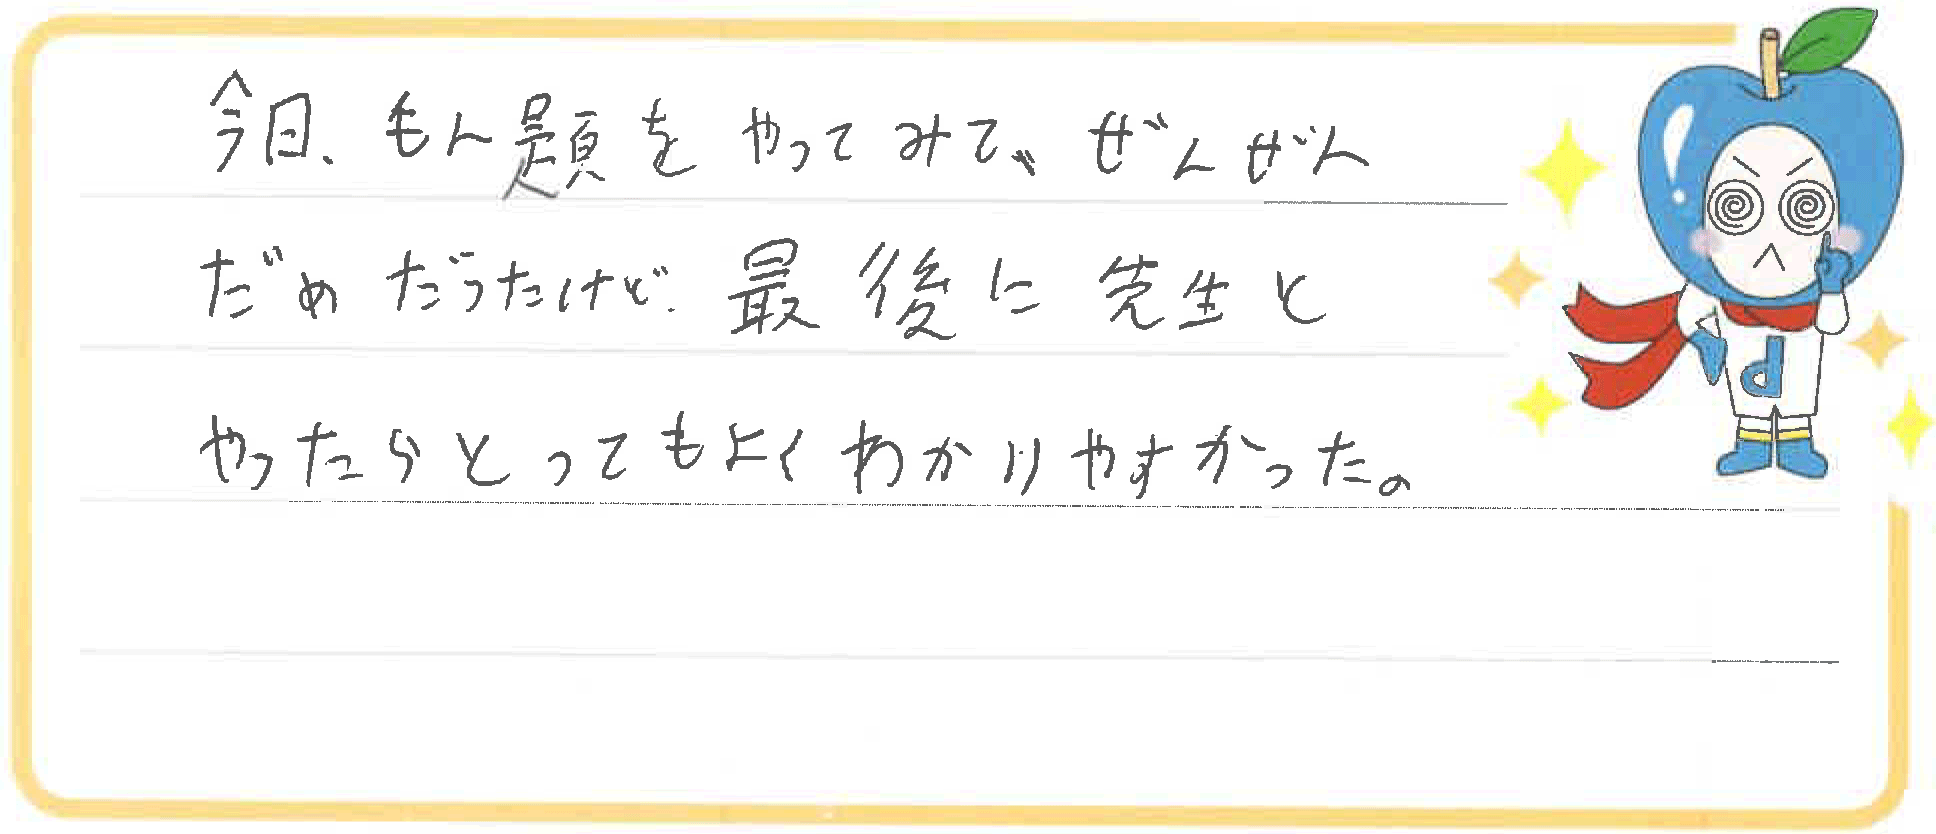 今日、もん題をやってみて、ぜんぜん
だめだったけど、最後に先生と
やったらとってもよくわかりやすかった。
d